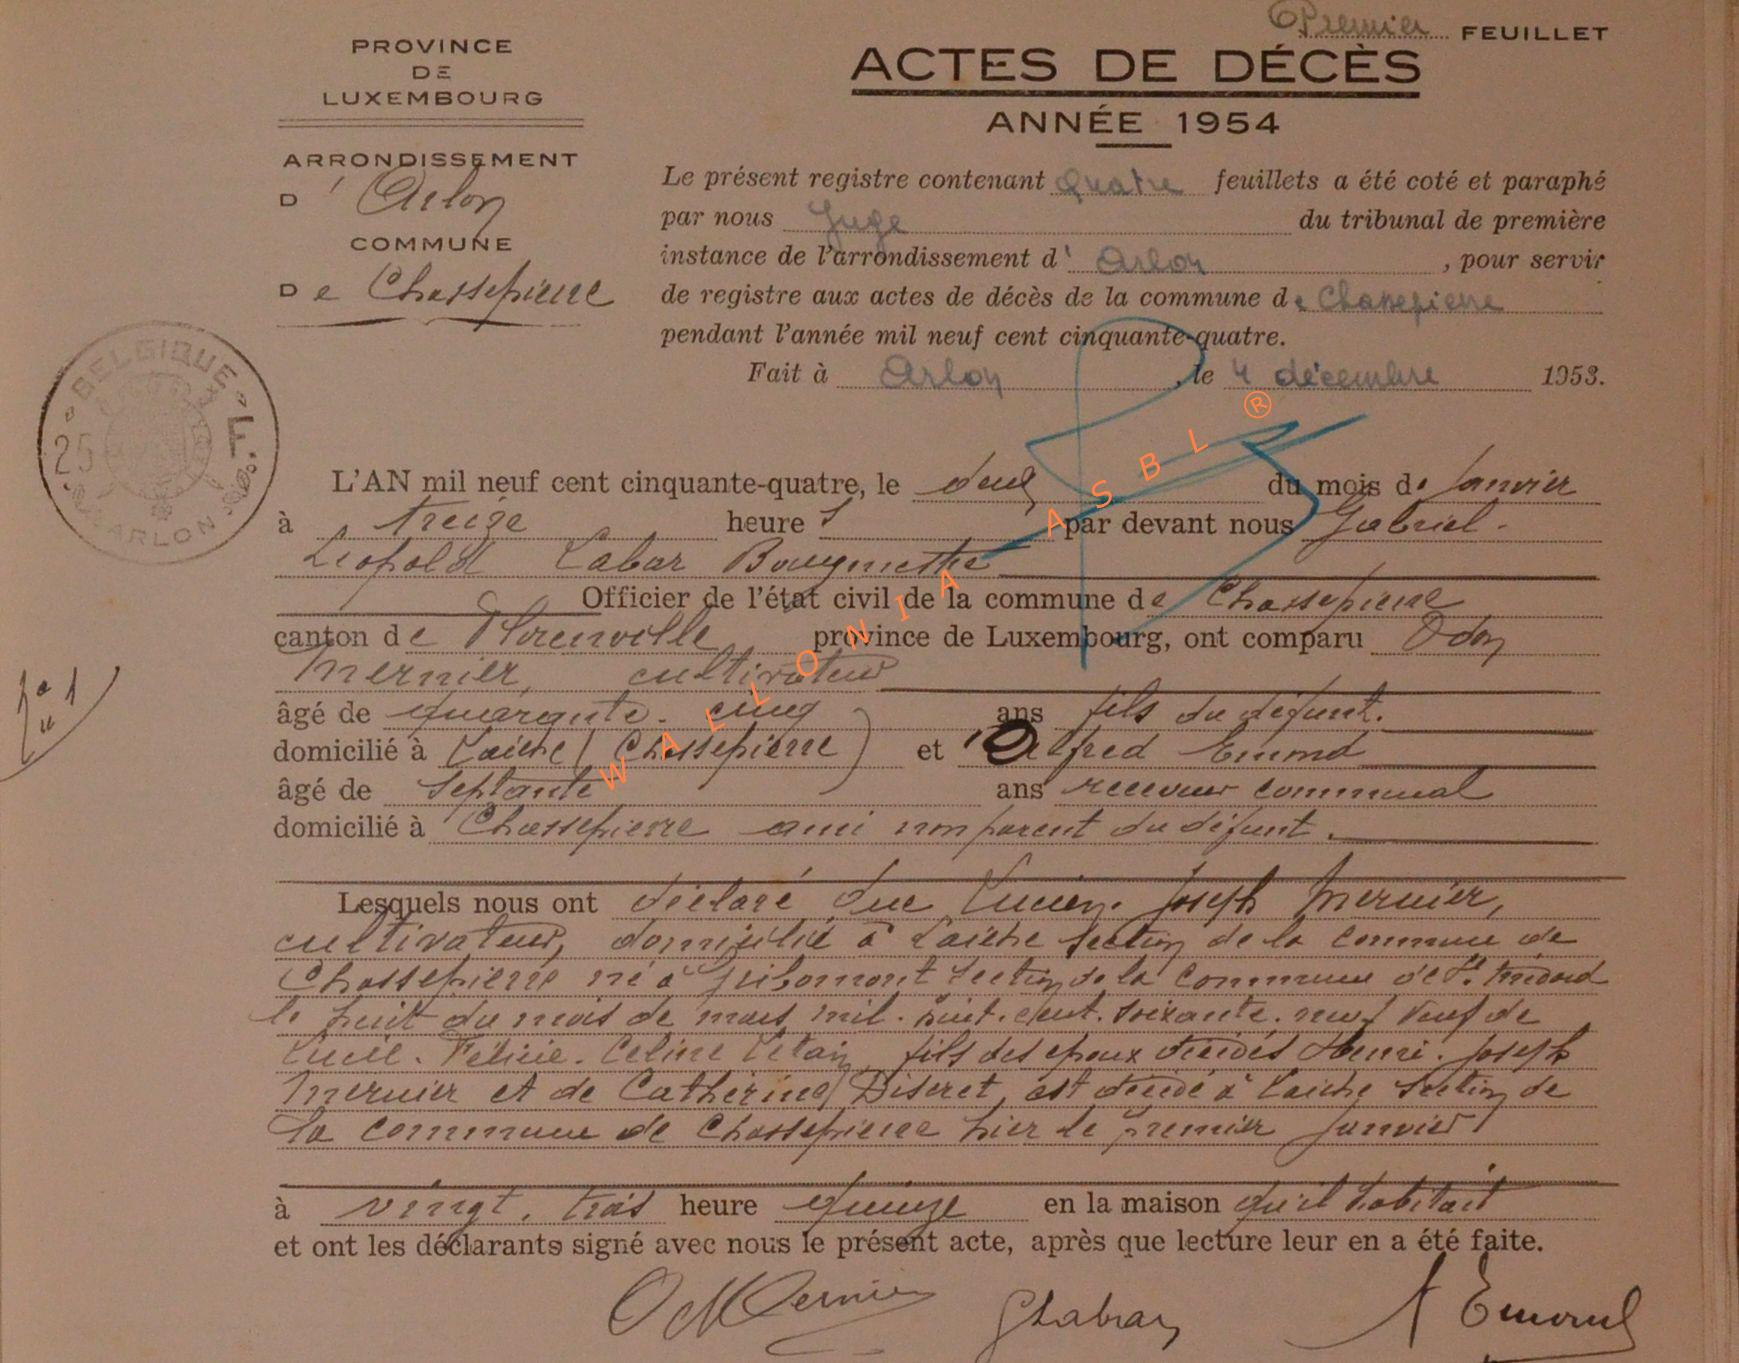 Premier FEUILLET
PROVINCE
DE
LUXEMBOURG
ACTES DE DÉCÈS
ANNÉE 1954
ARRONDISSEMENT
D' Arlon
COMMUNE
De Chassepierre
Le présent registre contenant quatre feuillets a été coté et paraphé
par nous Juge du tribunal de première
instance de l'arrondissement d' Arlon, pour servir
de registre aux actes de décès de la commune de Chassepierre
pendant l'année mil neuf cent cinquante-quatre.
Fait à Arlon, le 4 décembre 1953.
BELGIQUE
25 F
ARLON
L'AN mil neuf cent cinquante-quatre, le deux du mois de Janvier
à treize heures par devant nous Gabriel-
Léopold Labar Bourgmestre
Officier de l'état civil de la commune de Chassepierre
canton de Florenville province de Luxembourg, ont comparu Odon
Mernier, cultivateur
âgé de quarante-cinq ans fils du défunt.
domicilié à Laiche (Chassepierre) et Alfred Emond
âgé de septante ans receveur communal
domicilié à Chassepierre ami non parent du défunt.
N° 1
Lesquels nous ont déclaré que Lucien-Joseph Mernier,
cultivateur, domicilié à Laiche section de la commune de
Chassepierre né à Gribomont section de la commune de St. Médard
le huit du mois de mars mil-huit-cent-soixante-neuf veuf de
Félicie-Celine fils des époux décédés Henri-Joseph
Mernier et de Catherine Diseret, est décédé à Laiche section de
la commune de Chassepierre hier le premier janvier
à vingt-trois heure quinze en la maison qu'il habitait
et ont les déclarants signé avec nous le présent acte, après que lecture leur en a été faite.
O Mernier GLabar A Emond
WALLONIA ASBL ®